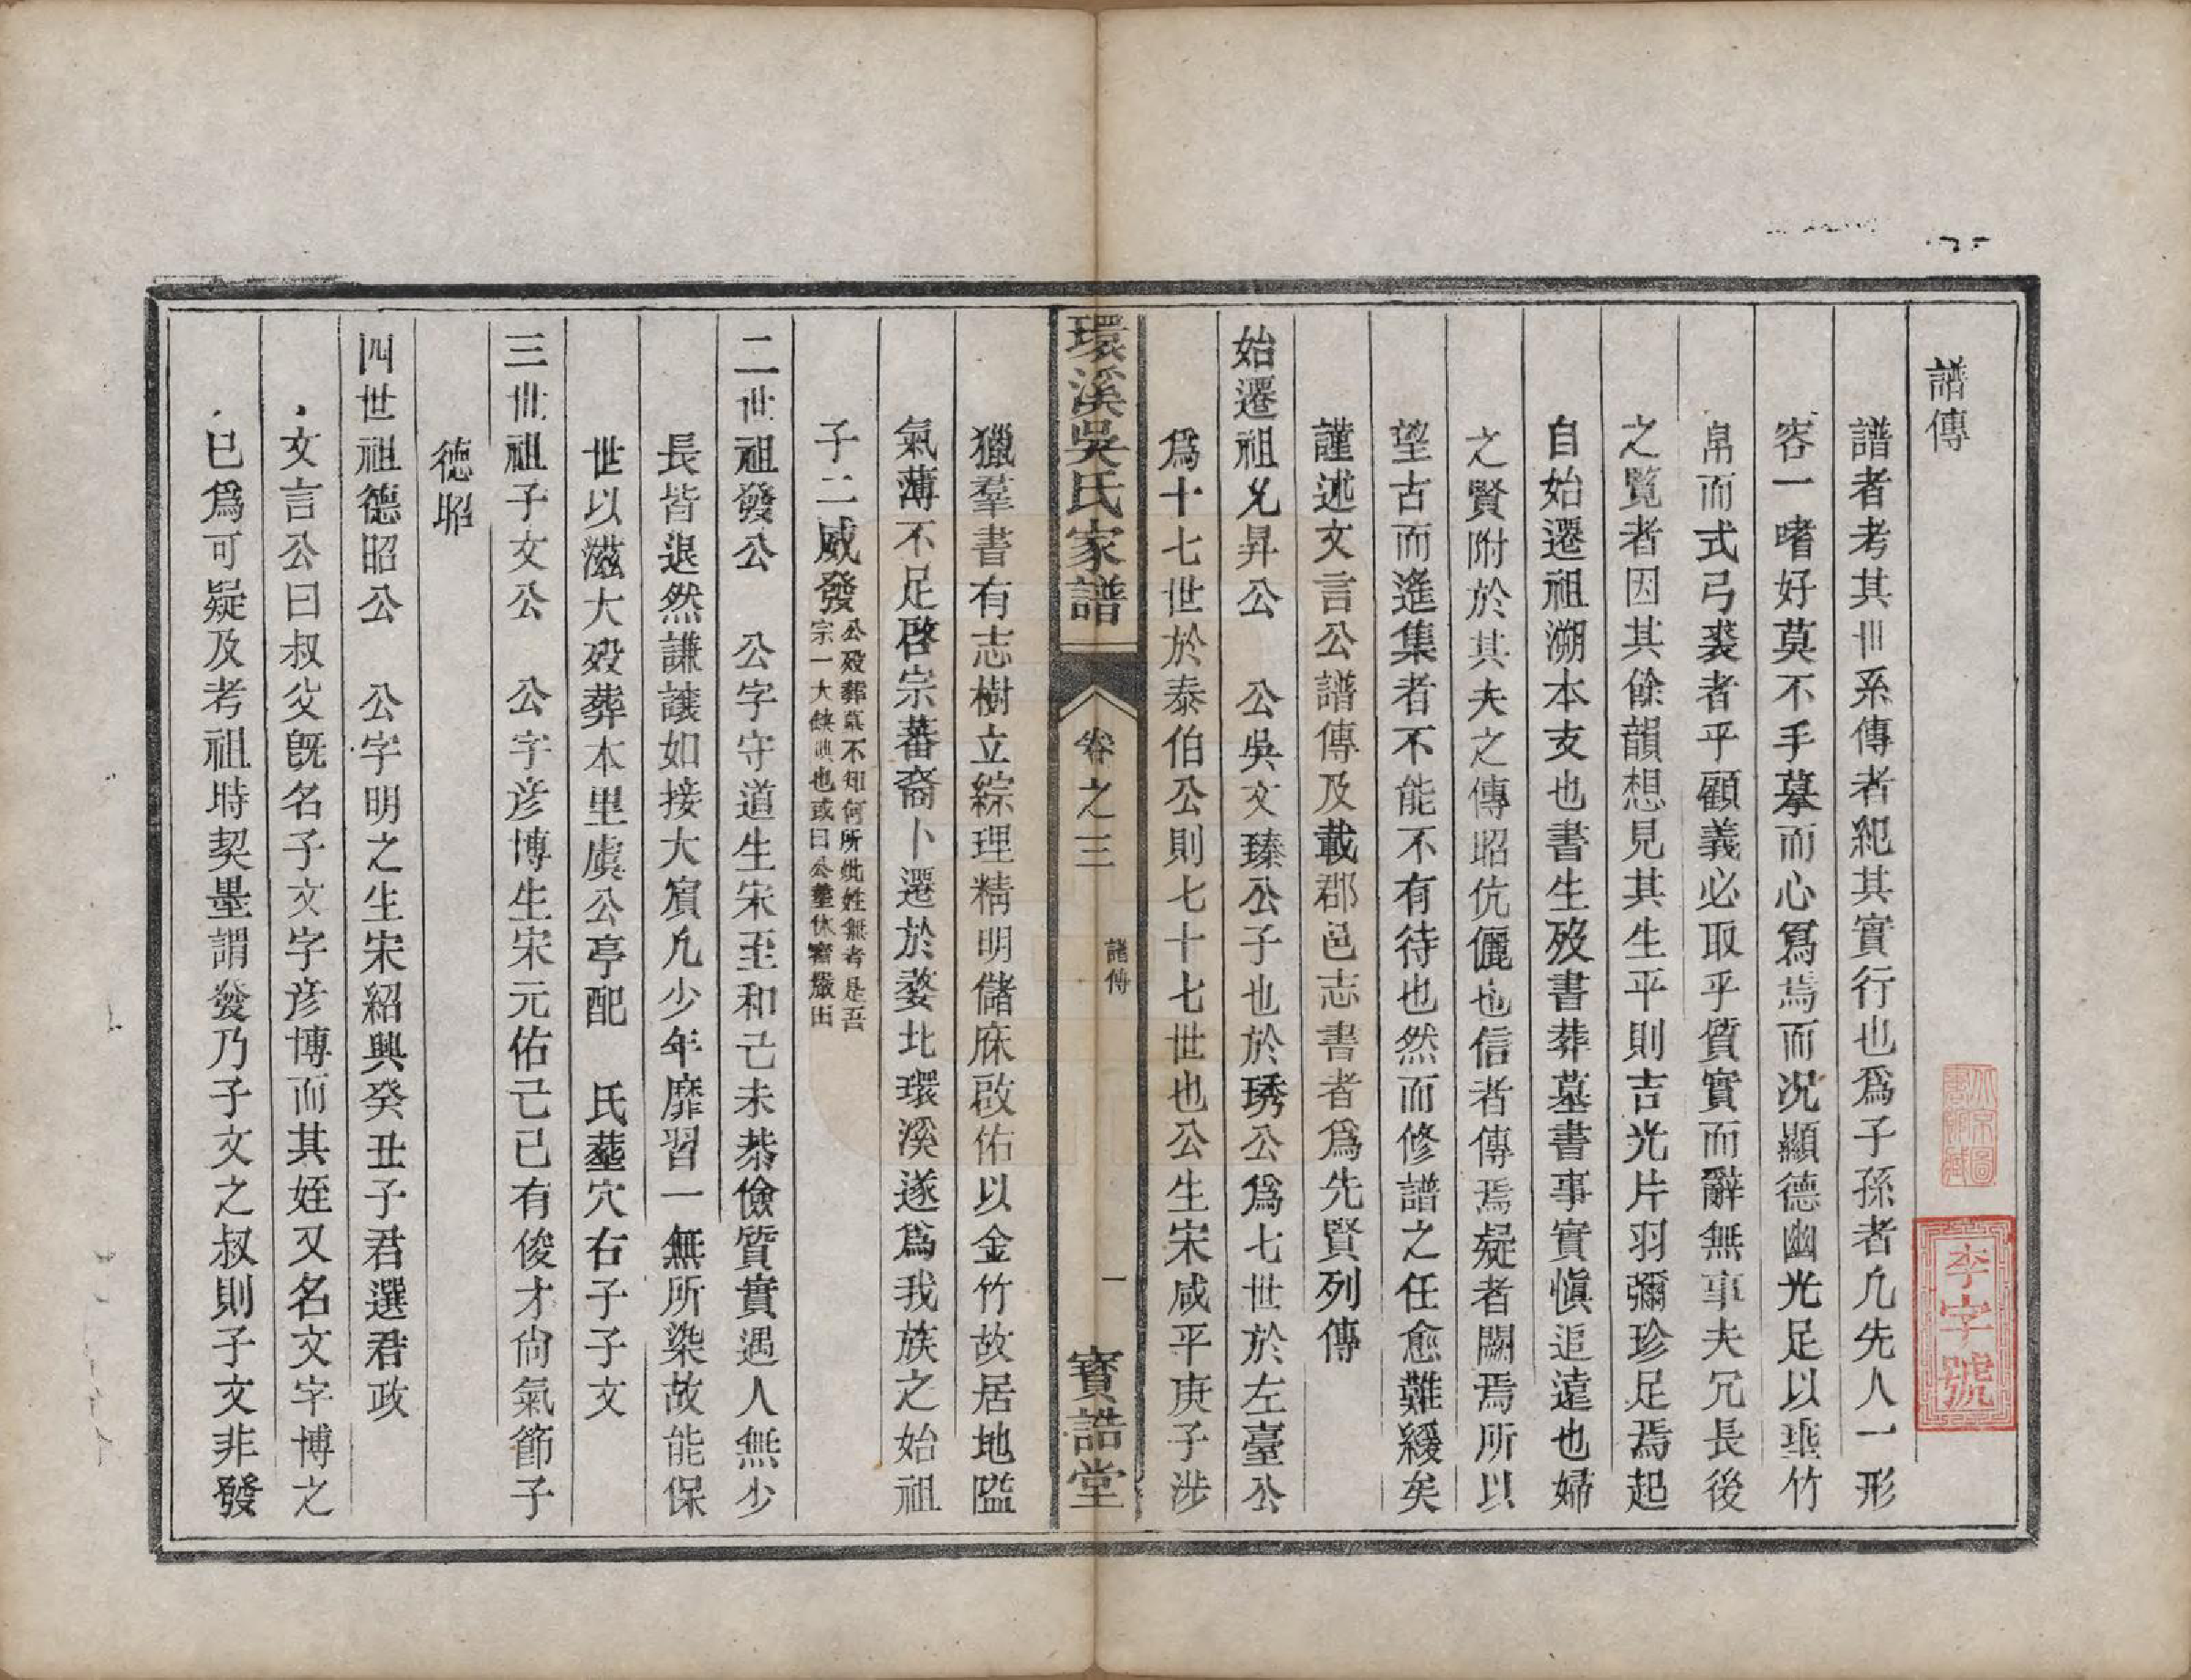 譜傳
譜者考其世系傳者紀其實行也爲子孫者凡先人一形
容一嗜好莫不手摹而心寫焉而况顯德幽光足以垂竹
帛而式弓裘者乎顧義必取乎質實而辭無事夫冗長後
之覽者因其餘韻想見其生平則吉光片羽彌珍足焉起
自始遷祖溯本支也書生歿書葬墓書事實愼追遠也婦
之賢附於其夫之傳昭伉儷也信者傳焉疑者闕焉所以
望古而遙集者不能不有待也然而修譜之任愈難緩矣
謹述文言公譜傳及載郡邑志書者爲先賢列傳
始遷祖允昇公　公吳文臻公子也於琇公爲七世於左臺公
爲十七世於泰伯公則七十七世也公生宋咸平庚子涉
環溪吳氏家譜　卷之三　譜傳　一　寶誥堂
獵羣書有志樹立綜理精明儲庥啟佑以金竹故居地隘
氣薄不足啓宗蕃裔卜遷於婺北環溪遂爲我族之始祖
子二威發
公歿葬墓不知何所妣姓無考是吾
宗一大缺典也或曰公墓休甯嚴田
二世祖發公　公字守道生宋至和己未恭儉質實遇人無少
長皆退然謙讓如接大賓凡少年靡習一無所染故能保
世以滋大歿葬本里虞公亭配　氏塟穴右子子文
三世祖子文公　公字彦博生宋元佑己巳有俊才尙氣節子
德昭
四世祖德昭公　公字明之生宋紹興癸丑子君選君政
文言公曰叔父旣名子文字彦博而其姪又名文字博之
已爲可疑及考祖時契墨謂發乃子文之叔則子文非發
李字號